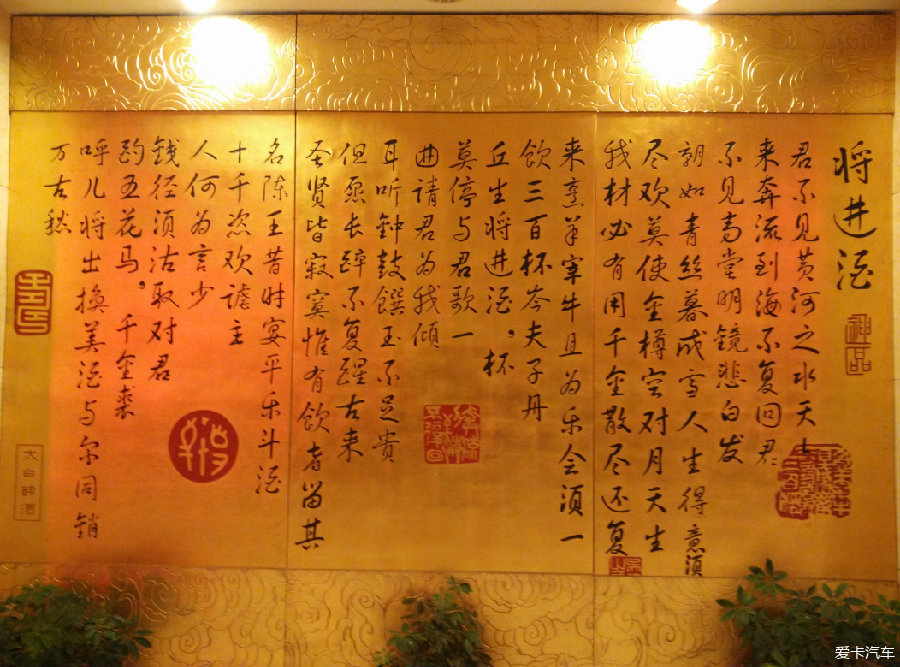 将进酒
君不见黄河之水天上
来奔流到海不复回君
不见高堂明镜悲白发
朝如青丝暮成雪人生得意须
尽欢莫使金樽空对月天生
我材必有用千金散尽还复
来烹羊宰牛且为乐会须一
饮三百杯岑夫子丹
丘生将进酒。杯
莫停与君歌一
曲请君为我倾
耳听钟鼓馔玉不足贵
但愿长醉不复醒古来
圣贤皆寂寞惟有饮者留其
名陈王昔时宴平乐斗酒
十千恣欢谑主
人何为言少
钱径须沽取对君
酌五花马。千金裘
呼儿将出换美酒与尔同销
万古愁
神品
爱卡汽车